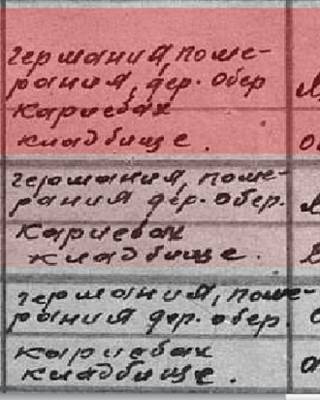 германия, поме-
рания, дер. Обер
Кариебах
кладбище.
германия, поме-
рания дер. Обер.
Кариебах
кладбище.
германия, поме-
рания дер. Обер.
Кариебах
кладбище.